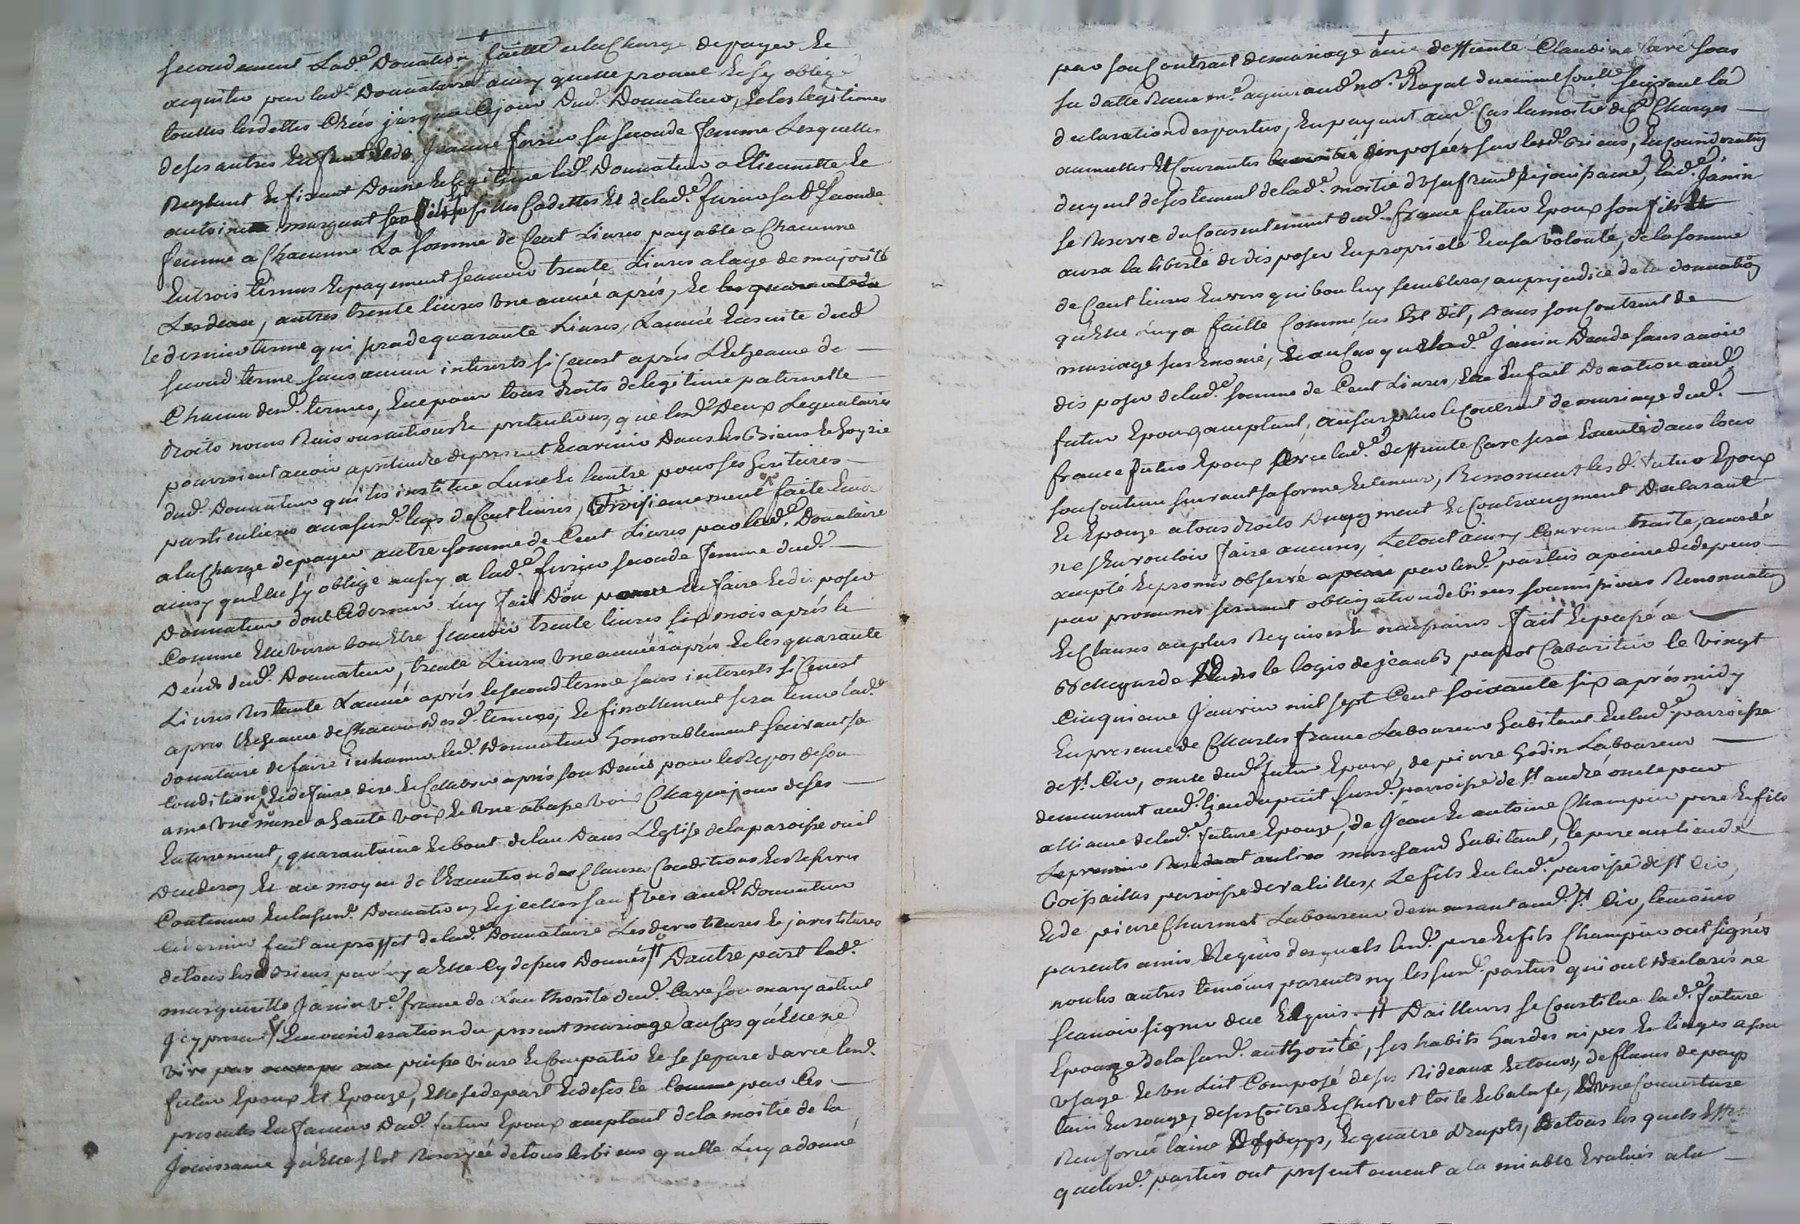 secondement lad.e Donation faitte a la Charge de payer et
acquitter par lad.e Donnataire ainsy quelle promet et sy oblige
touttes les dettes Crées jusqua ce jour dud. Donnateur, et les legitimes
de ses autres Enfants de Jeanne furin sa seconde femme Lesquelles
Reglant et fixant Donne et legitime led. Donnateur a Etiennette et
antoinette margant ses filles Cadettes et de lad.e furin sad.e seconde
femme a Chacunne La somme de Cent Livres payable a Chacunne
En trois termes et payement scavoir trente Livres a lage de majorité
Les deux, autres trente livres une année aprés, et les quarante
Le dernier terme qui sera de quarante Livres, L'année Ensuite dud.
second terme sans aucun interests si Cenest aprés L'Echeance de
Chacun desd. termes, et ce pour tous droits de legitime paternelle
droits noms Raisons actions et pretentions que lesd. Deux Legataires
pourroient avoir a pretendre de present et a venir Dans les Biens et hoyrie
dud. Donnateur qui les institue L'une et L'autre pour ses heritieres
particulieres aux susd. legs de Cent livres, Troisiemement faite
a la Charge de payer autre somme de Cent Livres par lad.e Donataire
ainsy quelle sy oblige aussy a lad.e furin seconde femme dud.
Donnateur dont Ce dernier Luy fait Don pour En faire et disposer
Comme Elle verra bon Etre scavoir trente livres six mois aprés le
Décés dud. Donnateur, trente Livres une année aprés et les quarante
Livres Restante L'année aprés le second terme sans interests si Cenest
aprés l'Echeance de Chacun desd. termes, et finallement sera tenue lad.e
donataire de faire inhumer led. Donnateur honorablement suivant sa
Condition, et de faire dire et Celebrer aprés son Décés pour le Repos de son
ame une messe a haute voix et une a basse voix Chaque jour de ses
Enterrement, quarantaine et bout de l'an Dans L'Eglise de la paroisse ou il
Decedera, Et au moyen de l'Execution des Clauses Conditions et Reserves
Contenues En la susd. Donnation, et jcelles sauf aud. Donnateur
Ce dernier fait au proffit de lad.e Donnataire Les devestitures et jnvestitures
de tous les Biens par luy a Elle Cy dessus Donnés // D'autre part lad.e
margueritte Janin V.e france de L'authorité dud. Carre son mary actuel
Jcy present, En consideration du present mariage au Cas quElle ne
puisse vivre et Compatir et se separe d'avec lesd.
futur Epoux Et Epouze, Elle se depart et desiste par Ces
presentes En faveur dud. futur Epoux acceptant de la moitié de la
Jouissance quElle s'est Reservée de tous les biens quelle Luy a donné
par son Contrat de mariage avec deffunte Claudine Carré sous
sa datte Receu m.e aymard no.re Royal duement Controllé suivant la
declaration des parties, En payant aud. Cas la moitié des Charges
annuelles Et Courantes imposées sur lesd. Biens, En consideration
duquel desistement de lad.e moitié d'usufruit et jouissance, lad.e Janin
se Reserve du Consentement dud. france futur Epoux son fils
aura la liberté de disposer En proprieté et a sa volonté, de la somme
de Cent livres Envers qui bon luy semblera, au prejudice de la donnation
quElle Luy a faitte Comme sus Est dit, Dans son Contrat de
mariage sus Enoncé, Et au Cas que lad.e Janin Decede sans avoir
disposer de lad.e somme de Cent Livres, Elle En fait Donation aud.
futur Epoux acceptant, au surplus le Contrat de mariage dud.
france futur Epoux avec lad.e deffunte Carré sera Executé dans tous
son Contenu suivant sa forme et teneur, Renoncent lesd. futur Epoux
Et Epouze a tous droits d'augment et Contraugment Declarant
ne s'En vouloir faire aucuns, Le tout ainsy Convenu traité, accordé
accepté et promis observé par lesd. parties a peine de depens
par promesses serment obligation de biens soumissions Renonciations
Et Clauses au plus Requises et necessaires fait et passé a
dans le logis de jean B papot Cabaretier le vingt
Cinquieme Janvier mil sept Cent soixante six aprés midy
En presence de Charles france Laboureur habitant En lad.e parroisse
de S.t Cir, oncle dud. futur Epoux, de pierre Godin Laboureur
demeurant aud. lieu du petit susd. paroisse de S.t andré oncle par
alliance de lad.e future Epouze, de Jean et antoine Champin pere Et fils
Le premier marchand habitant, le pere au lieu de
paroisse de Le fils En lad.e paroisse de S.t Cir,
Et de pierre Charmet Laboureur demeurant aud. S.t Cir, temoins
parents amis Requis desquels lesd. pere Et fils Champin ont signés
non les autres temoins parents ny les susd. parties qui ont declarés ne
scavoir signer de ce Enquis. // D'ailleurs se Constitue lad.e future
Epouze de la susd. authorité, ses habits hardes nipes Et linges a son
usage Et un Lit Composé de ses Rideaux et tours, de flanes de pays
teint En rouge, de sa Coitre et Chevet toile et balasse, d'une Couverture
Renforcée laine de pays, et quatre draps, de tous lesquels Effets
que lesd. parties ont presentement a la miable Evalués a la